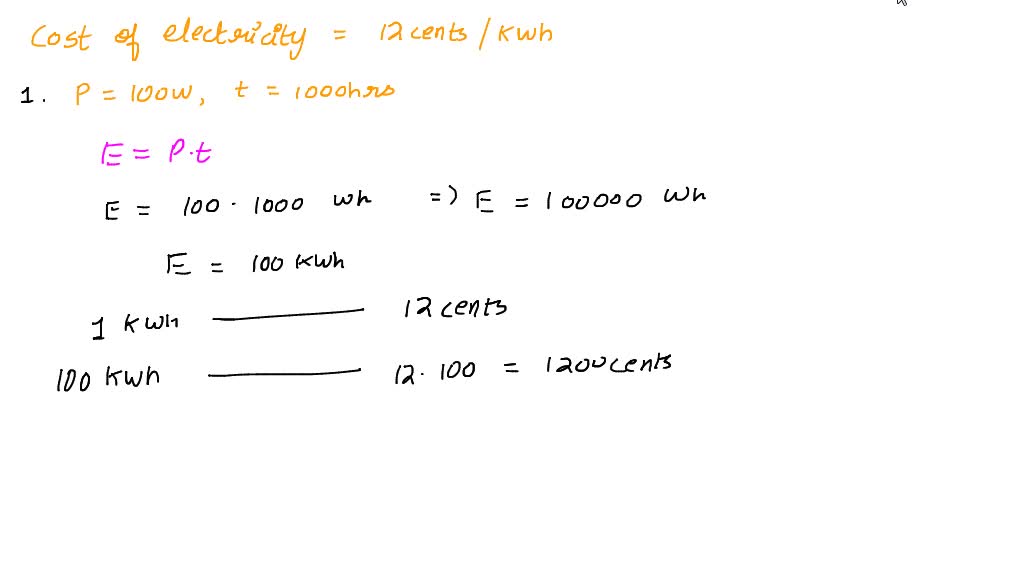 Cost of electricity = 12 cents / Kwh
1. P = 100W, t = 1000hrs
E = P.t
E = 100 . 1000 Wh => E = 100000 Wh
E = 100 KWh
1 KWh — 12 cents
100 KWh — 12. 100 = 1200 cents